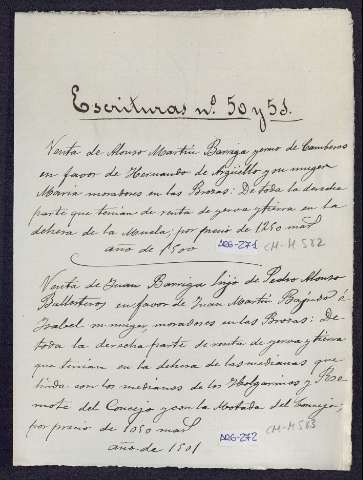 Escrituras nº. 50 y 51.
Venta de Alonso Martín Barriga yerno de Camberos
en favor de Hernando de Argüello y su muger
María moradores en las Brozas: De toda la derecha
parte que tenian de renta de yerva y tierra en la
dehesa de la Muela; por precio de 1250 mas
año de 1500
ARG-271 CM-M 582
Venta de Juan Barriga hijo de Pedro Alonso
Ballesteros en favor de Juan Martín é
Isabel su muger, moradores en las Brozas: De
toda la derecha parte de renta de yerva y tierra
que tenian en la dehesa de las medianas que
linda con las medianas de los Holgaminos y
mote del Concejo y con la del Concejo;
por precio de 1050 mas
año de 1501
ARG-272 CM-M 583